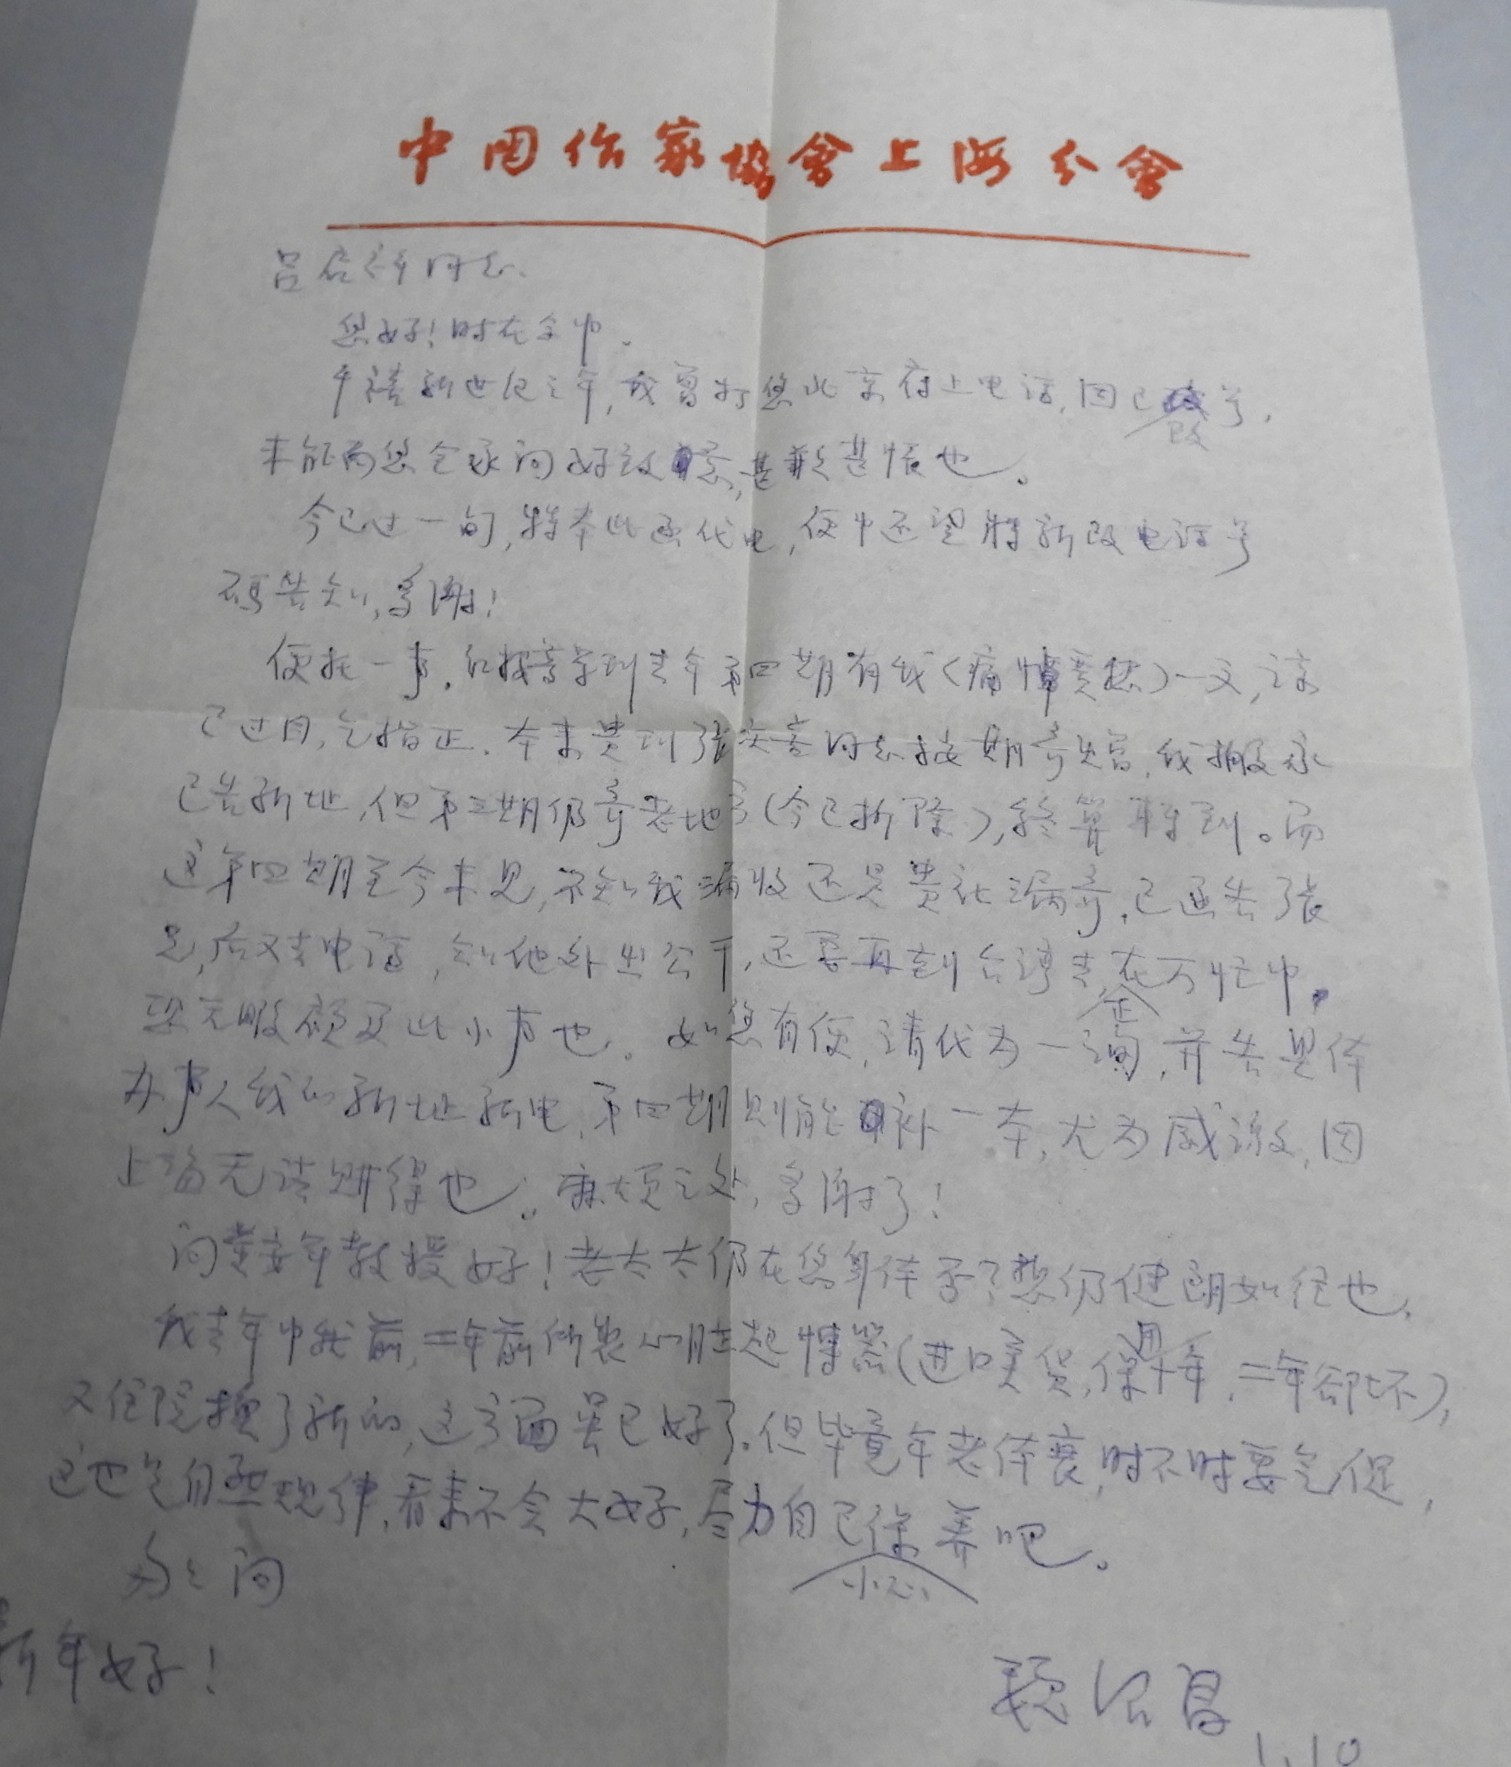 中国作家協會上海分會
吕启祥同志：
您好！时在念中。
千禧新世纪之年，我曾打您北京府上电话，因已改号，
未能向您全家问好致意，甚歉甚怅也。
今已过一旬，特奉此函代电，便中还望将新改电话号
码告知，多谢！
便托一事，红楼梦学刊去年第四期有我（痛悼）一文，谅
已过目，乞指正。本来贵刊张庆善同志按期寄赠，我搬家
已告新址，但第三期仍寄老地方（今已拆除），终算取到。而
这第四期至今未见，不知我漏收还是贵社漏寄，已函告张
兄，后又去电话，知他外出公干，还要再到台湾去，正在万忙中，
恐无暇顾及此小事也。如您有便，请代为一询，并告具体
办事人我的新址新电，第四期则能补一本，尤为感激，因
上海无法购得也。麻烦之处，多谢了！
问黄安年教授好！老太太仍在您身体子？想仍健朗如往也。
我去年中秋前，二年前所装心脏起悸器（进口美货，保用十年，二年却坏），
又住院换了新的，这方面是已好了。但毕竟年老体衰，时不时要气促，
这也是自然规律，看来不会大好，尽力自己小心保养吧。
匆匆问
新年好！
魏绍昌
1.10